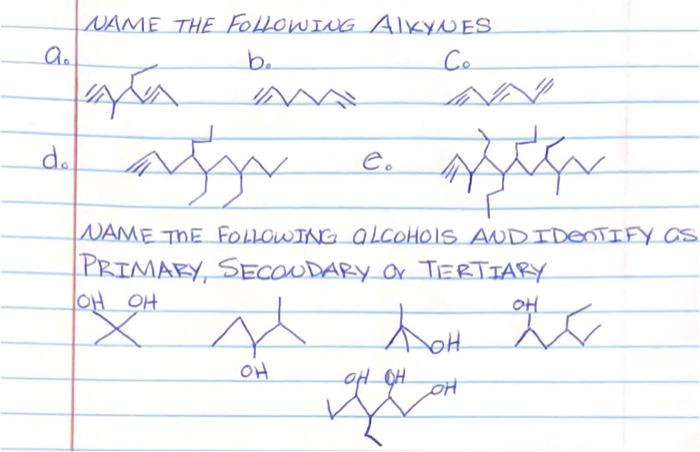 NAME THE FOLLOWING AlKYNES
a. b. C.
d. e.
NAME THE FOLLOWING alCOHOlS AND IDENTIFY as
PRIMARY, SECONDARY Or TERTIARY
OH OH OH
OH OH
OH OH OH